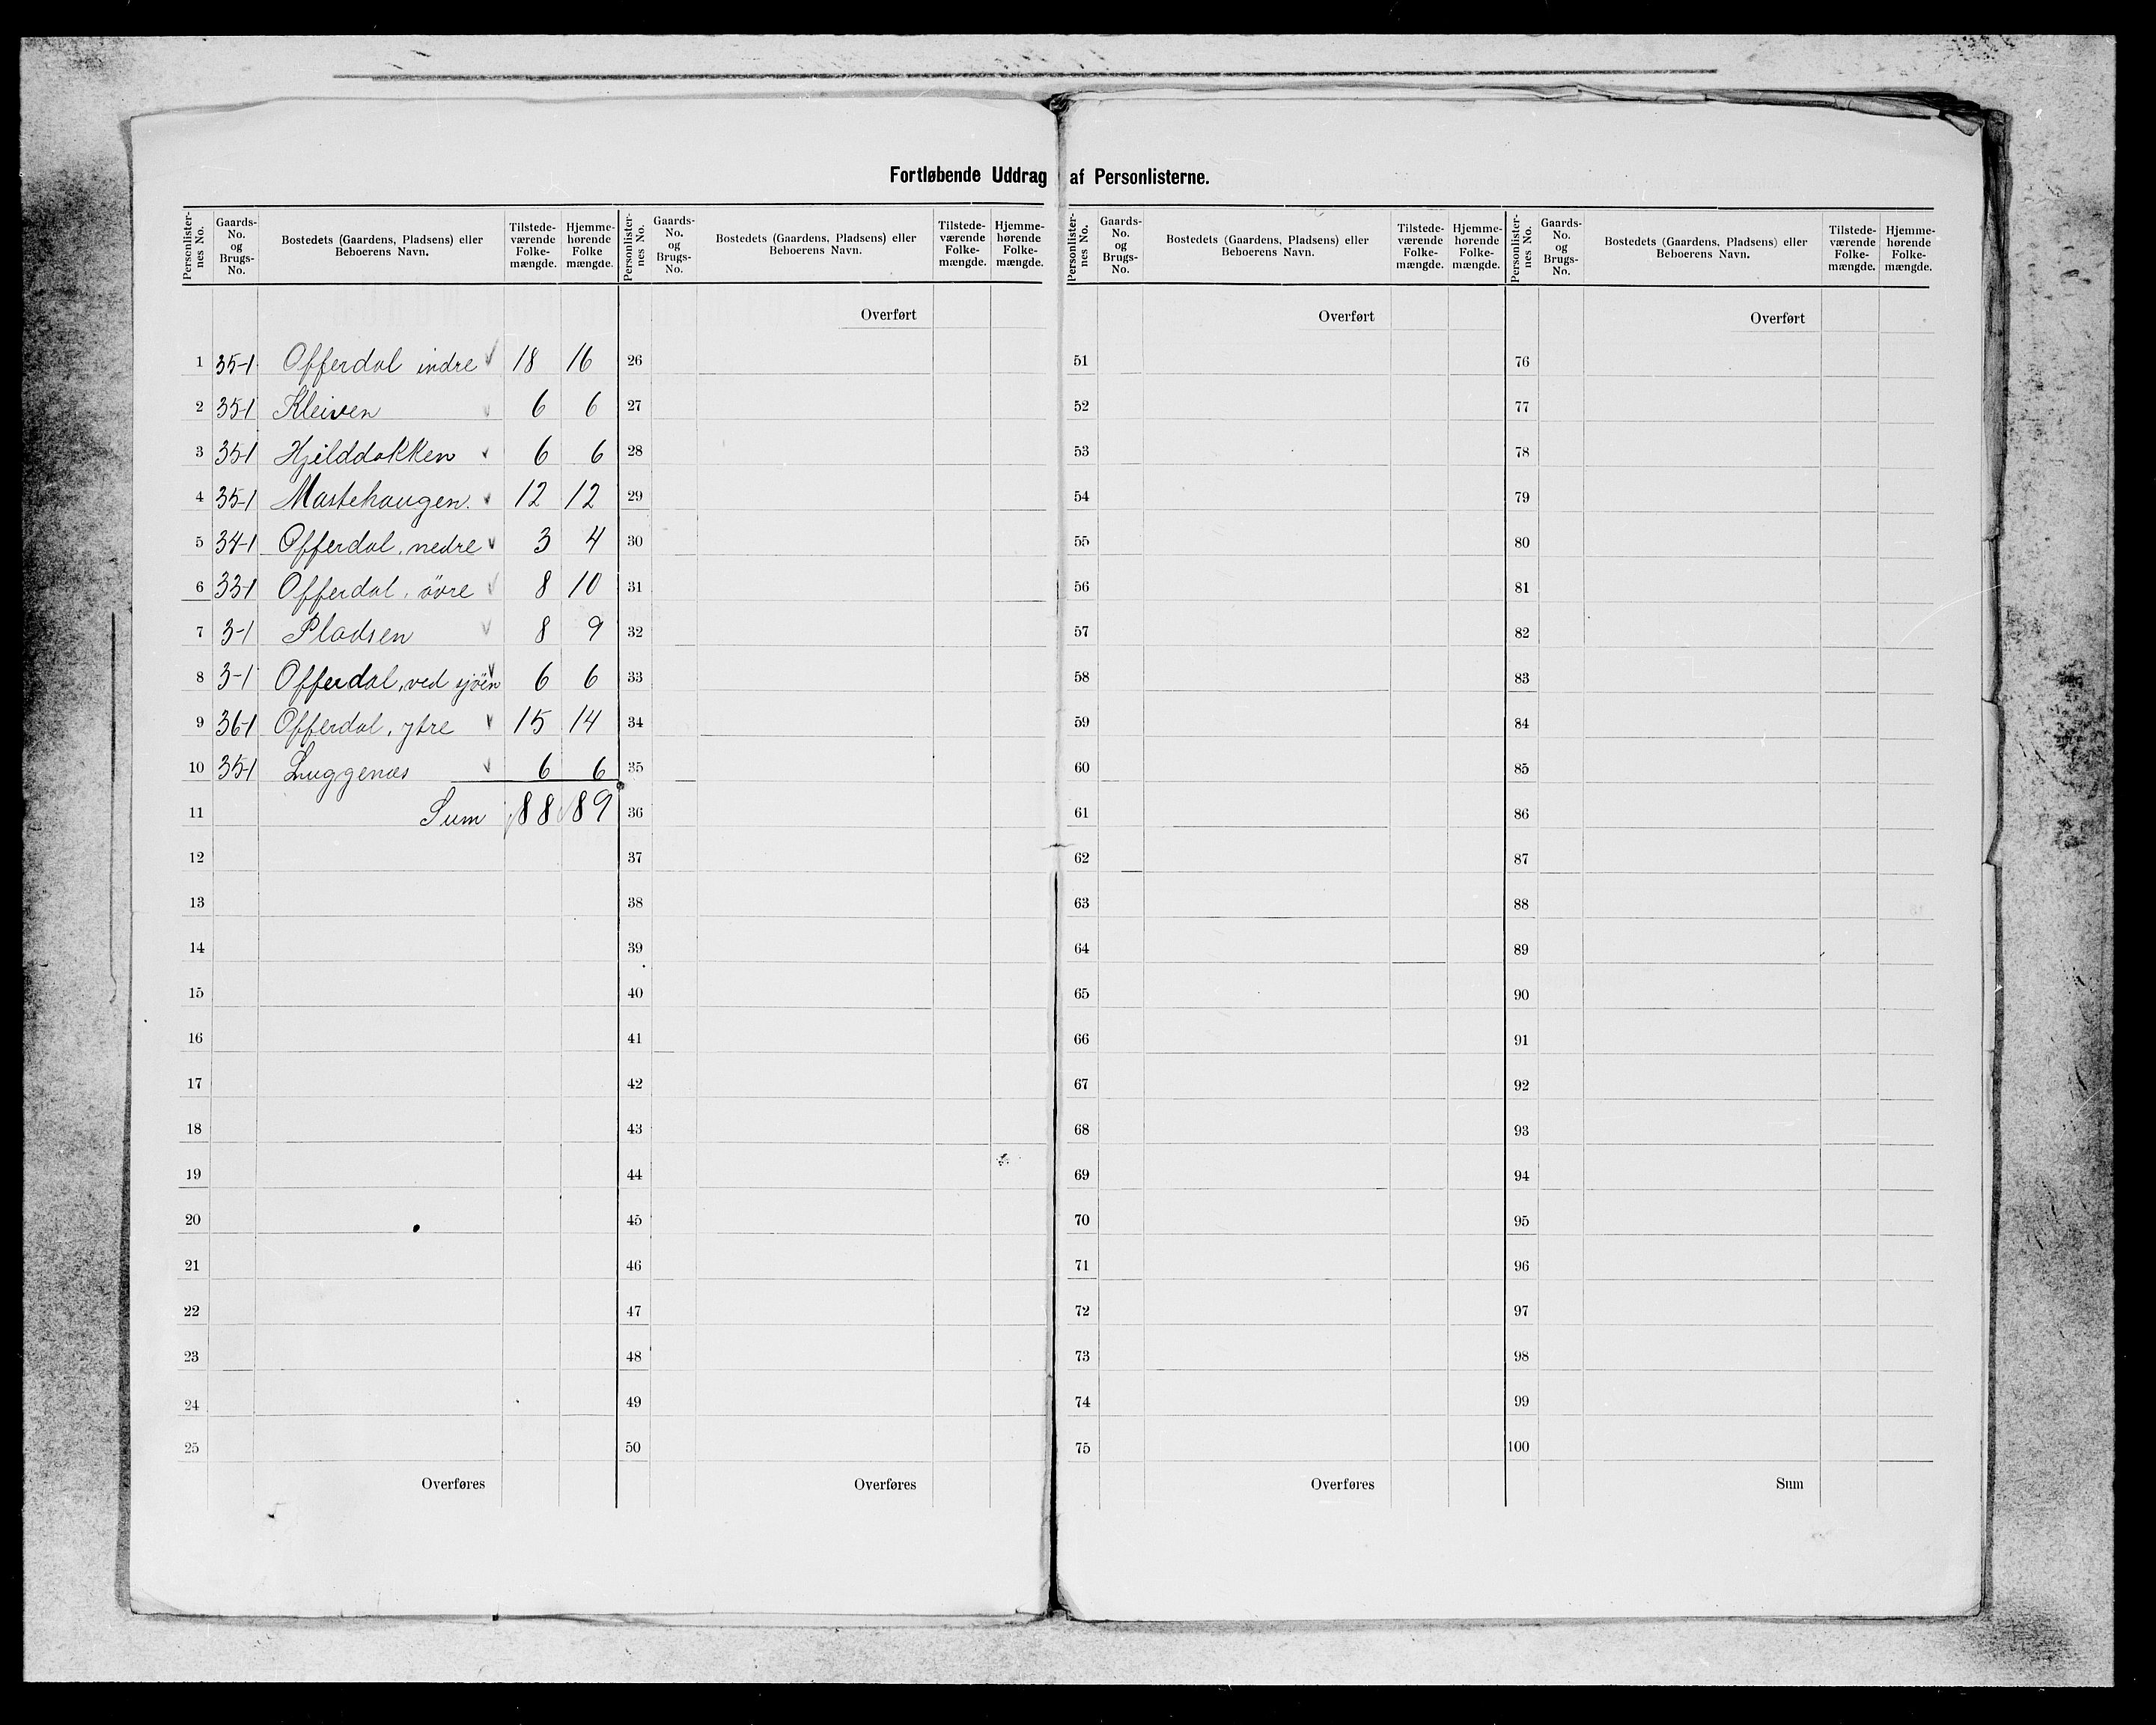 Fortløbende Uddrag af Personlisterne.
Personlister-nes No. Gaards-No. og Brugs-No. Bostedets (Gaardens, Pladsens) eller Beboerens Navn. Tilstede-værende Folke-mængde. Hjemme-hørende Folke mængde. Personlister-nes No. Gaards-No. og Brugs-No. Bostedets (Gaardens, Pladsens) eller Beboerens Navn. Tilstede-værende Folke-mængde. Hjemme-hørende Folke-mængde. Personlister-nes No. Gaards-No. og Brugs-No. Bostedets (Gaardens, Pladsens) eller Beboerens Navn. Tilstede-værende Folke-mængde. Hjemme-hørende Folke-mængde. Personlister-nes No. Gaards-No. og Brugs-No. Bostedets (Gaardens, Pladsens) eller Beboerens Navn. Tilstede-værende Folke-mængde. Hjemme-hørende Folke-mængde.
Overført Overført Overført
1 35-1 Offerdal indre ✓ 18 16 26 51 76
2 35-1 Kleiven ✓ 6 6 27 52 77
3 35-1 Hjilddakken ✓ 6 6 28 53 78
4 35-1 Mastehaugen. ✓ 12 12 29 54 79
5 34-1 Offerdal, nedre ✓ 3 4 30 55 80
6 33-1 Offerdal, övre ✓ 8 10 31 56 81
7 3-1 Pladsen ✓ 8 9 32 57 82
8 3-1 Offerdal, ved sjöen ✓ 6 6 33 58 83
9 36-1 Offerdal, ytre ✓ 15 14 34 59 84
10 35-1 Luggenæs ✓ 6 6 35 60 85
11 Sum 88 89 36 61 86
12 37 62 87
13 38 63 88
14 39 64 89
15 40 65 90
16 41 66 91
17 42 67 92
18 43 68 93
19 44 69 94
20 45 70 95
21 46 71 96
22 47 72 97
23 48 73 98
24 49 74 99
25 50 75 100
Overføres Overføres Overføres Sum